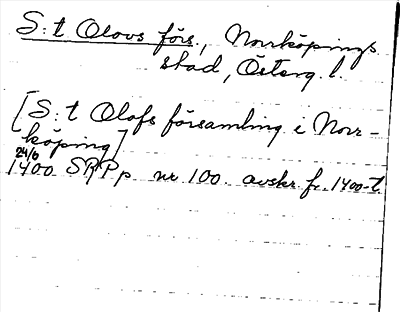 S:t Olovs förs., Norrköpings
stad, Österg. l.
[S:t Olofs församling i Norr-
köping]
24/6
1400 SRPp nr 100. avskr. fr. 1400-t.